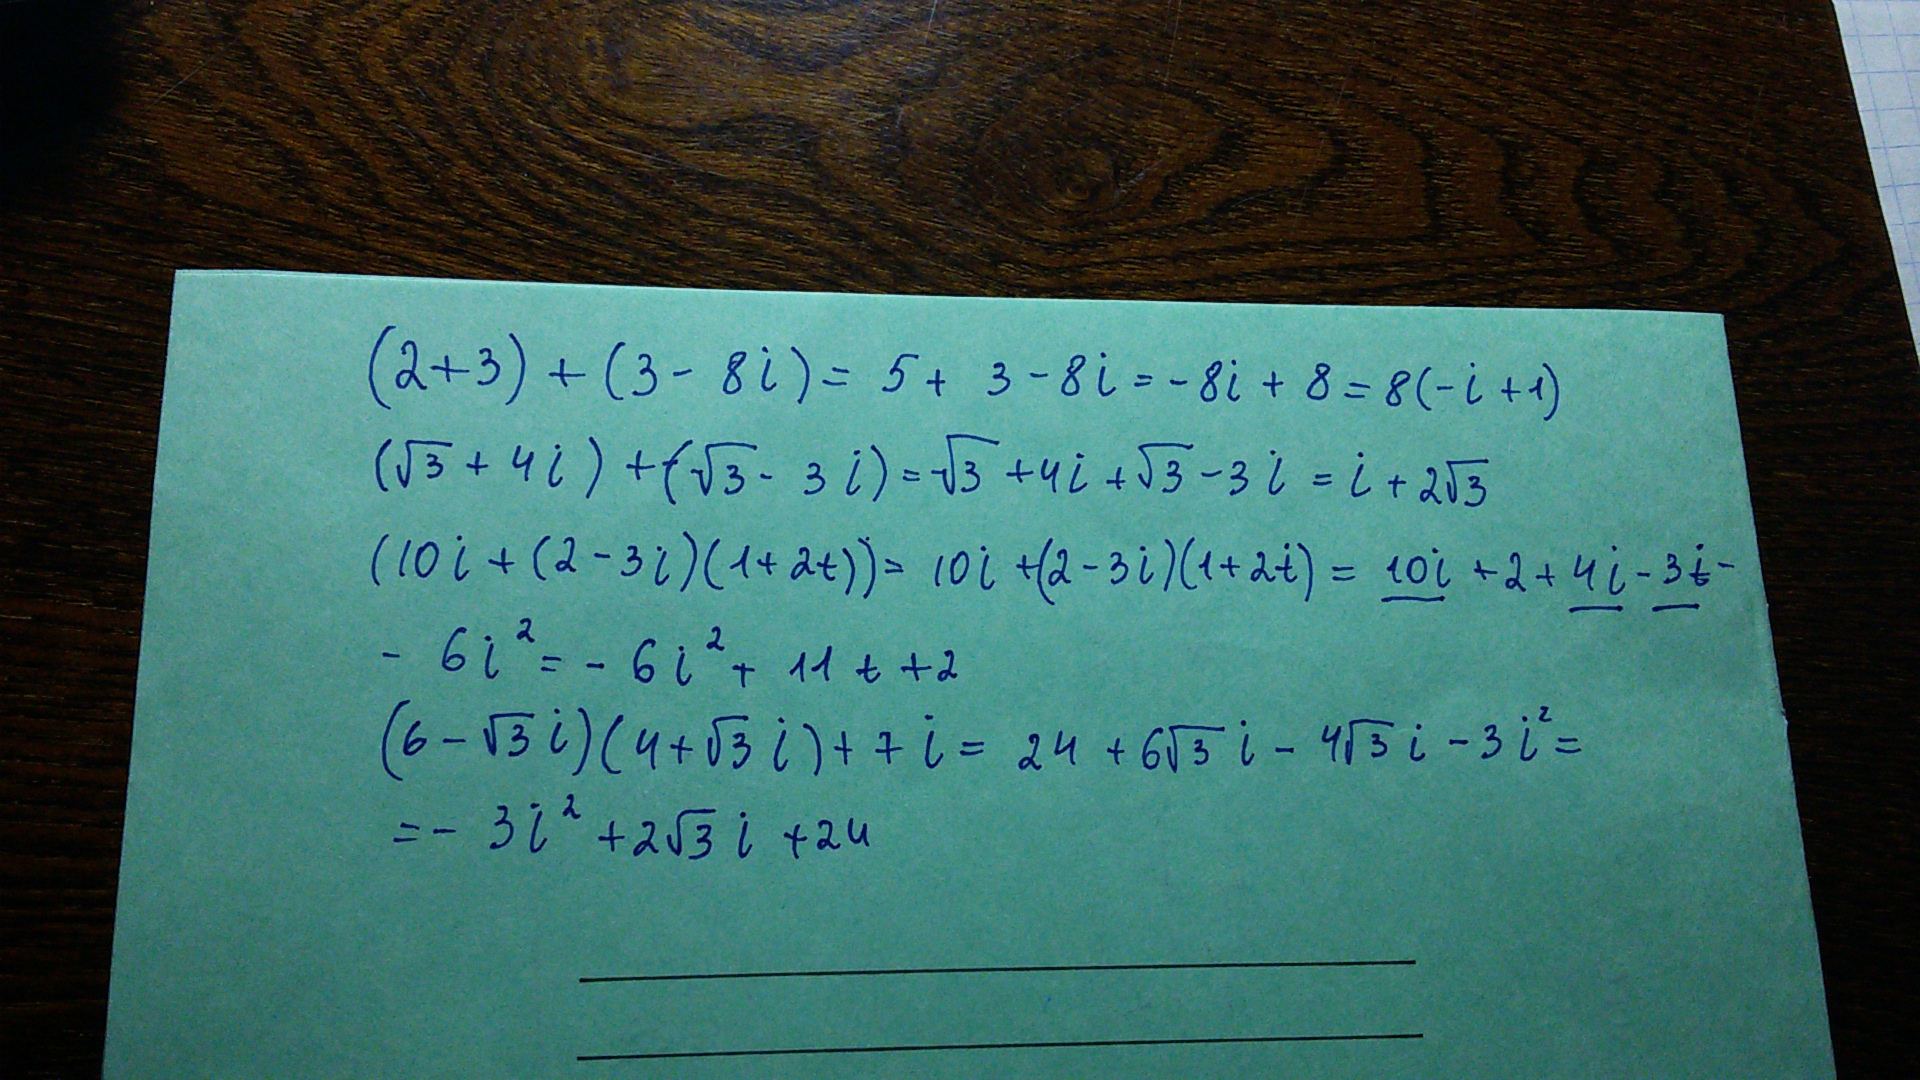 (2+3) + (3 - 8i) = 5 + 3 - 8i = - 8i + 8 = 8(-i + 1)
(√3 + 4i) + (√3 - 3i) = √3 + 4i + √3 - 3i = i + 2√3
(10i + (2 - 3i)(1 + 2t)) = 10i + (2 - 3i)(1 + 2i) = 10i + 2 + 4i - 3i -
- 6i² = - 6i² + 11t + 2
(6 - √3i)(4 + √3i) + 7i = 24 + 6√3i - 4√3i - 3i² =
= - 3i² + 2√3i + 24